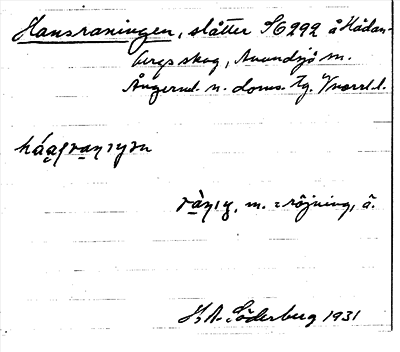 Hansraningen, slåtter S6292 å Hådan-
bergs skog, Anundsjö sn.
Ångerml. n. doms. tg. Vnorrl. l.
rà̱ŋıg, m. = röjning, ä.
H. A. Söderberg 1931